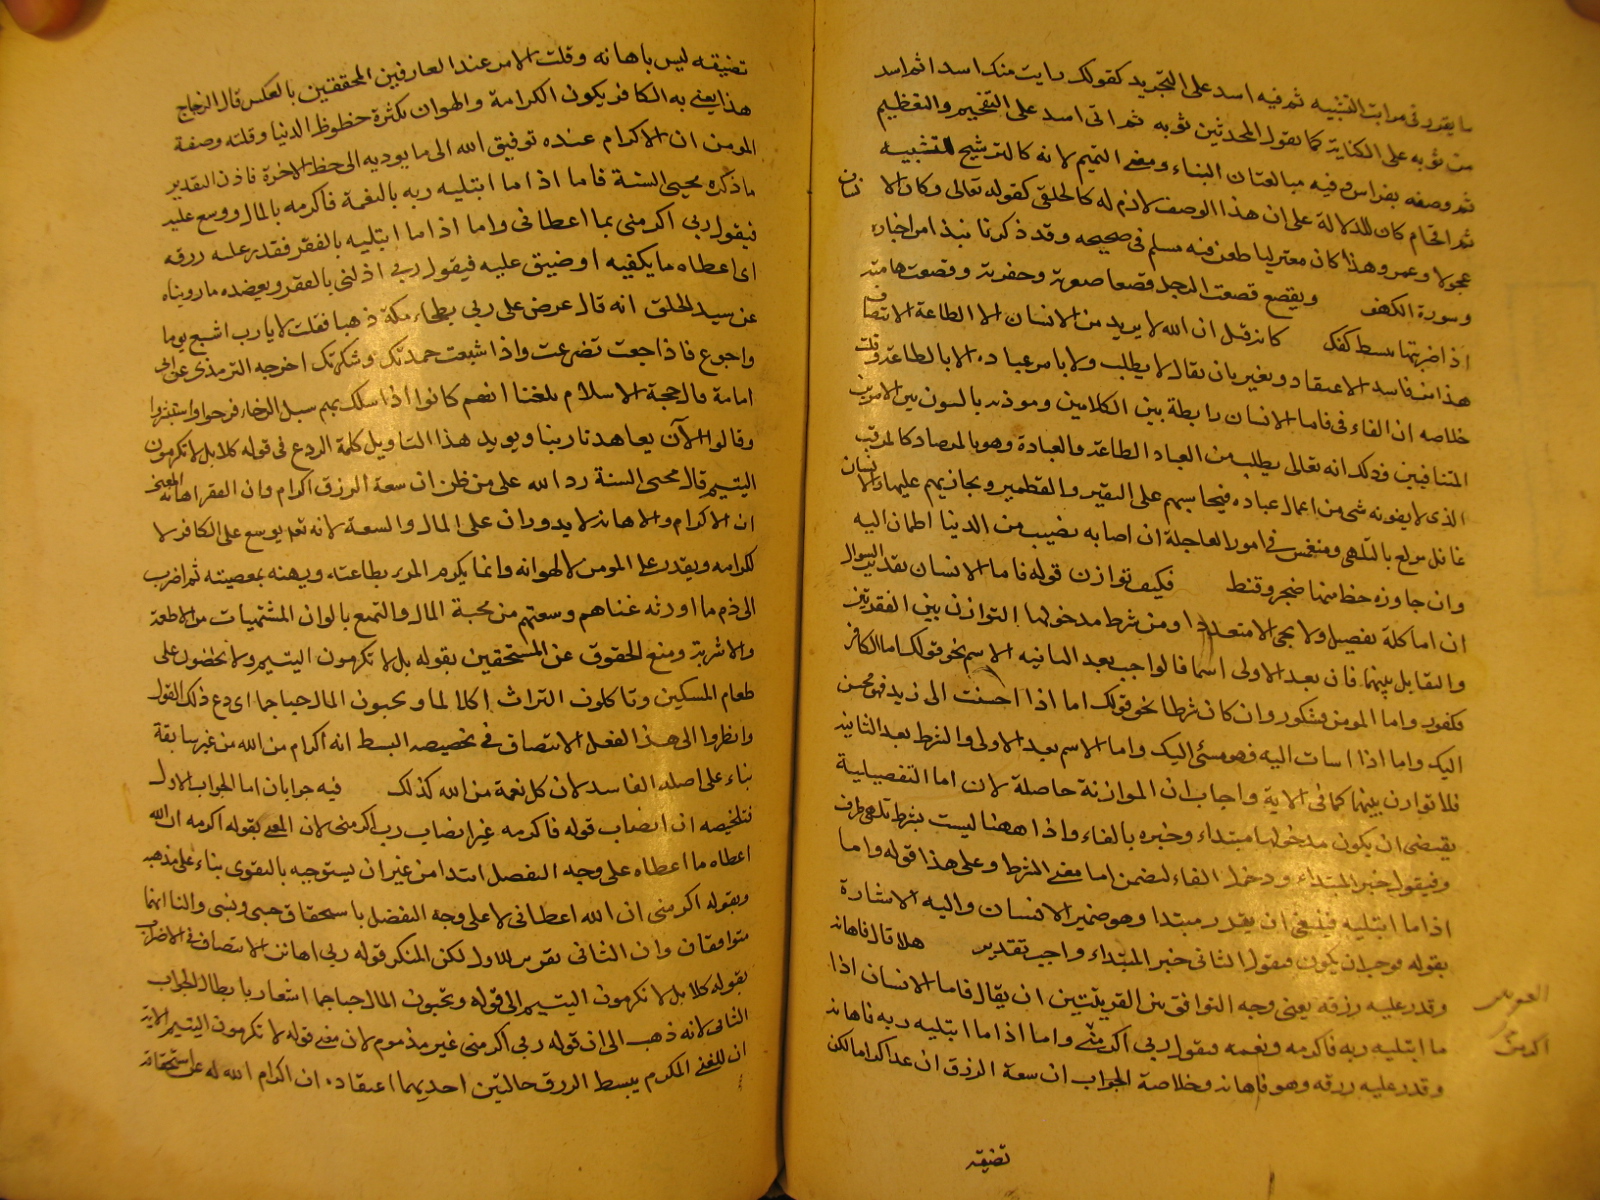 ما يقرر في مراتب التشبيه ثم فيه اسد على التجريد كقولك رايت منك اسدا ثم اسد
من ثوبه على الكناية كما يقول المحدثين ثوبه ثم اتى اسد على التفخيم والتعظيم
ثم وصفه بفراس وفيه مبالغتان البناء ومعنى التميم لانه كالترشيح للتشبيه
ثم اقحام كان للدلالة على ان هذا الوصف لازم له كالخلقي كقوله تعالى وكان الا نسان
عجولا وعمرو هذا كان معتزليا طعن فيه مسلم في صحيحه وقد ذكرنا نبذا من اخباره
و سورة الكهف ويقصع قصعت الرجل قصعا صغرته وحقرته وقصعت هامته
اذا ضربتها ببسط كفك كانه قيل ان الله لا يريد من الانسان الا الطاعة الانتصاف
هذا منه فاسد الاعتقاد وتغييره بان يقال لا يطلب ولا يامر عباده الا بالطاعة وقلت
خلاصه ان الفاء في فاما الانسان رابطة بين الكلامين وموذنه بالبون بين الامرين
المتنافيين وذلك انه تعالى يطلب من العباد الطاعة والعبادة وهو بالمرصاد كالمرقب
الذي لا يفوته شي من اعمال عباده فيحاسبهم على النقير والقطمير ويجازيهم عليها والانسان
غافل مولع بالتلهي ومنغمس في امور العاجلة ان اصابه نصيب من الدنيا اطمان اليه
وان جاوزه حظ منها ضجر وقنط فكيف توازن قوله فاما الانسان تقديره السوال
ان اما كلة تفصيل ولا يجي الا متعددا ومن شرط مدخولها التوازن بين القرينتين
والتقابل بينهما فان بعد الاولى اسما فالواجب بعد الثانيه الاسم نحو قولك اما الكافر
فكفور واما المومن فشكور وان كان شرطا نحو قولك اما اذا احسنت الى زيد فهو محسن
اليك واما اذا اسات اليه فهو مسئ اليك واما الاسم بعد الاولى والشرط بعد الثانيه
فلا توازن بينهما كما في الاية واجاب ان الموازنة حاصلة لان اما التفصيلية
تقتضي ان يكون مدخولها مبتداء وخبره بالفاء واذا ههنا ليست بشرط بل هي ظرف
وفيقول خبر المبتداء ودخول الفاء لتضمن اما معنى الشرط وعلى هذا قوله واما
اذا ما ابتليه فينبغي ان يقدر مبتدا وهو ضمير الانسان واليه الاشارة
بقوله فوجب ان يكون فيقول الثاني خبر المبتداء واجب تقديره هلا قال فاهانه
وقدر عليه رزقه يعني وجه التوافق بين القرينتين ان يقال فاما الانسان اذا
ما ابتليه ربه فاكرمه ونعمه فيقول ربي اكرمني واما اذا ما ابتليه ربه فاهانه
وقدر عليه رزقه وهو فاهانه وخلاصة الجواب ان سعة الرزق ان عد اكراما لكن
تضيقه
تضيقه ليس باهانه وقلت الامر عند العارفين المحققين بالعكس قال الزجاج
هذا يعني به الكافر يكون الكرامة والهوان بكثرة حظوظ الدنيا وقلته وصفة
المومن ان الاكرام عنده توفيق الله الى ما يوديه الى حظ الاخرة فاذن التقدير
ما ذكره محيي السنة فاما اذا ما ابتليه ربه بالنعمة فاكرمه بالمال ووسع عليه
فيقول ربي اكرمني بما اعطاني واما اذا ما ابتليه بالفقر فقدر عليه رزقه
اي اعطاه ما يكفيه او ضيق عليه فيقول ربي اذلني بالفقر ويعضده ما رويناه
عن سيد الخلق انه قال عرض علي ربي بطحاء مكة ذهبا فقلت لا يا رب اشبع يوما
واجوع فاذا جعت تضرعت واذا شبعت حمدتك وشكرتك اخرجه الترمذي عن ابي
امامة قال حجة الاسلام بلغنا انهم كانوا اذا سلك بهم سبيل الرخاء فرحوا واستبشروا
وقالوا الآن يعاهدنا ربنا ويويد هذا التاويل كلمة الردع في قوله كلا بل لا تكرمون
اليتيم قال محيي السنة رد الله على من ظن ان سعة الرزق اكرام وان الفقر اهانة المعنى
ان الاكرام والاهانة لا يدوران على المال والسعة لانه تع يوسع على الكافر لا
لكرامه ويقدر على المومن لا لهوانه وانما يكرم المرء بطاعته ويهنه بمعصيته ثم اضرب
الى ذم ما اورثه غناهم وسعتهم من محبة المال والتمتع بالوان المشتهيات من الاطعمة
والاشربة ومنع الحقوق عن المستحقين بقوله بل لا تكرمون اليتيم ولا يحضون على
طعام المسكين وتاكلون التراث اكلا لما ويحبون المال حبا جما اي دع ذلك القول
وانظروا الى هذا الفعل الانتصاف في تخصيصه البسط انه اكرام من الله من غير سابقة
بناء على اصله الفاسد لان كل نعمة من الله كذلك فيه جوابان اما الجواب الاول
فتلخيصه ان انصباب قوله فاكرمه غير انصباب رب اكرمني لان المعنى بقوله اكرمه ان الله
اعطاه ما اعطاه على وجه التفضل ابتدا من غير ان يستوجبه بالتقوى بناء على مذهبه
وبقوله اكرمني ان الله اعطاني لا على وجه التفضل باستحقاق حسبي ونسبي والثاني انهما
متوافقان وان الثاني تقرير للاول لكن المنكر قوله ربي اهانن الانتصاف في الاضراب
بقوله كلا بل لا تكرمون اليتيم الى قوله وتحبون المال حبا جما اشعار بابطال الجواب
الثاني لانه ذهب الى ان قوله ربي اكرمني غير مذموم لان معنى قوله لا تكرمون اليتيم الاية
ان للغني المكرم ببسط الرزق حالتين احديهما اعتقاده ان اكرام الله له على استحقاقه